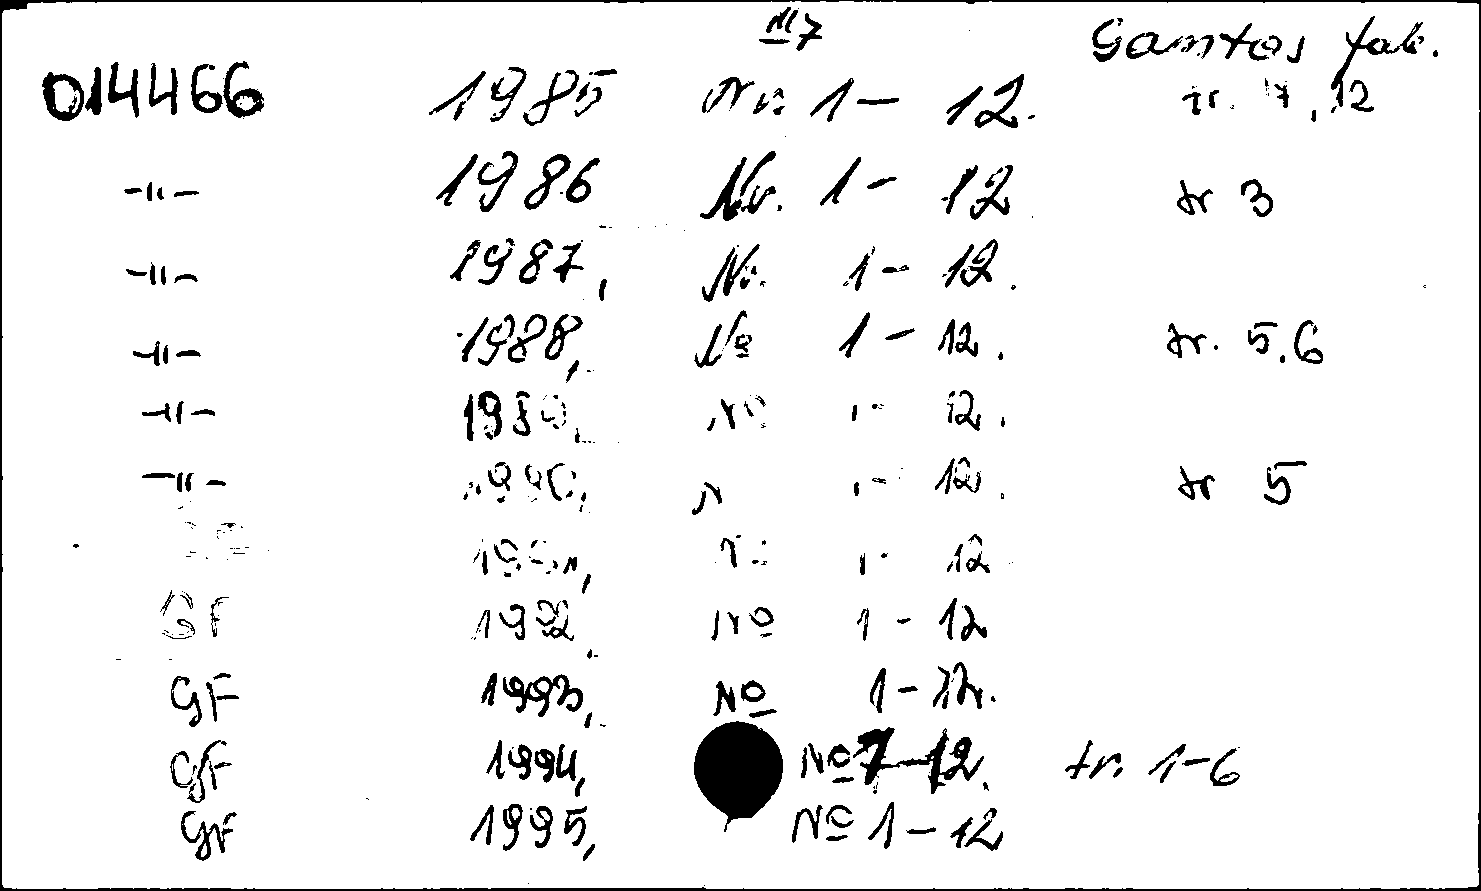 №7 Gamtos fak.
014466 1985 Nr. 1- 12. tr. 7, 12
-"- 1986 Nr. 1- 12 tr 3
-"- 1987, Nr. 1- 12.
-"- 1988, № 1- 12. tr. 5,6
-"- 1989, № 1- 12.
-"- 1990, N 1- 12. tr 5
1991, № 1- 12
GF 1992, № 1- 12
GF 1993, № 1-12.
GF 1994, № 7-12. tr. 1-6
GF 1995, № 1-12